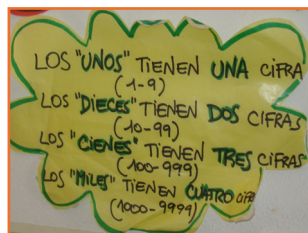 LOS "UNOS" TIENEN UNA CIFRA
(1-9)
LOS "DIECES" TIENEN DOS CIFRAS
(10-99)
LOS "CIENES" TIENEN TRES CIFRAS
(100-999)
LOS "MILES" TIENEN CUATRO CIFRA
(1000-9999)